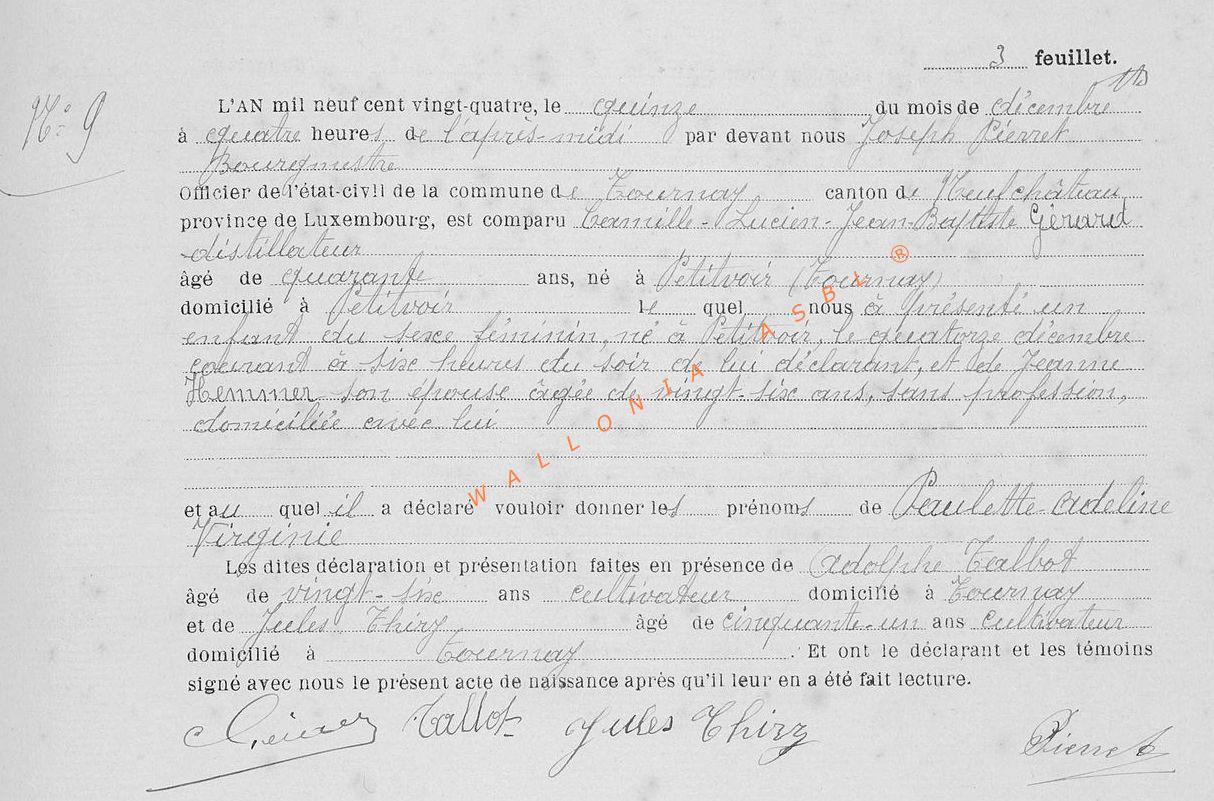 3 feuillet.
N° 9
L'AN mil neuf cent vingt-quatre, le quinze du mois de décembre
à quatre heures de l'après-midi par devant nous Joseph Pierret
Bourgmestre
Officier de l'état-civil de la commune de Tournay canton de Neufchâteau
province de Luxembourg, est comparu Camille-Lucien-Jean-Baptiste Gérard
distillateur
âgé de quarante ans, né à Petitvoir (Tournay)
domicilié à Petitvoir le quel nous à présenté un
enfant du sexe féminin, né à Petitvoir, le quatorze décembre
courant à six heures du soir de lui déclarant, et de Jeanne
Hemmer son épouse âgée de vingt-six ans, sans profession,
domiciliée avec lui
WALLONIA ASBL ®
et au quel il a déclaré vouloir donner les prénoms de Paulette Adeline
Virginie
Les dites déclaration et présentation faites en présence de Adolphe Talbot
âgé de vingt-six ans cultivateur domicilié à Tournay
et de Jules Thiry âgé de cinquante-un ans cultivateur
domicilié à Tournay. Et ont le déclarant et les témoins
signé avec nous le présent acte de naissance après qu'il leur en a été fait lecture.
Talbot Jules Thiry Pierret